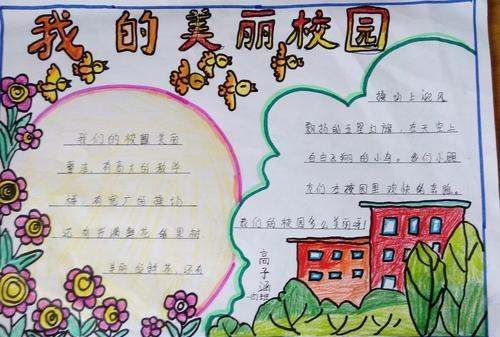 我的美丽校园
我们的校园美丽
整洁,有高大的教学
楼,有宽广的操场
还有开满鲜花
美丽的鲜花,还有
操场上迎风
飘扬的五星红旗,在天空上
自由飞翔的小鸟。我们小朋
友们在校园里欢快
我们的校园多么美丽啊!
高子涵